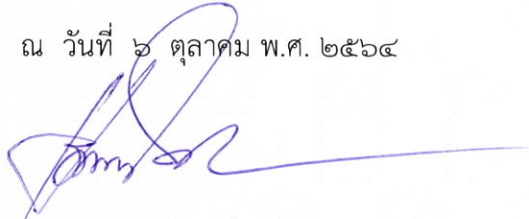 ณ วันที่ ๖ ตุลาคม พ.ศ. ๒๕๖๔